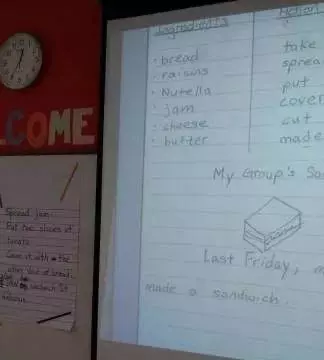 COME
Ingredients
Action
bread
raisins
Nutella
jam
cheese
butter
take
sprea
put
cover
cut
made
My Group's Sa
Last Friday,
made a sandwich.
Spread jam.
Put two slices of
tomato.
Cover it with the
other slice of bread.
sandwich. It
delicious.